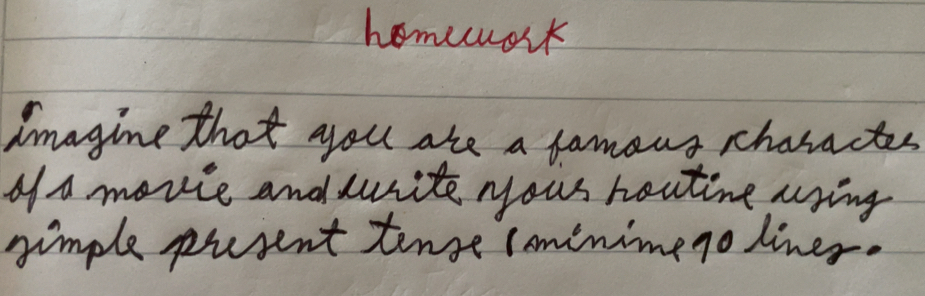 homework
imagine that you are a famous kharacter
of a movie and write your routine using
simple present tense (minime 90 lines.